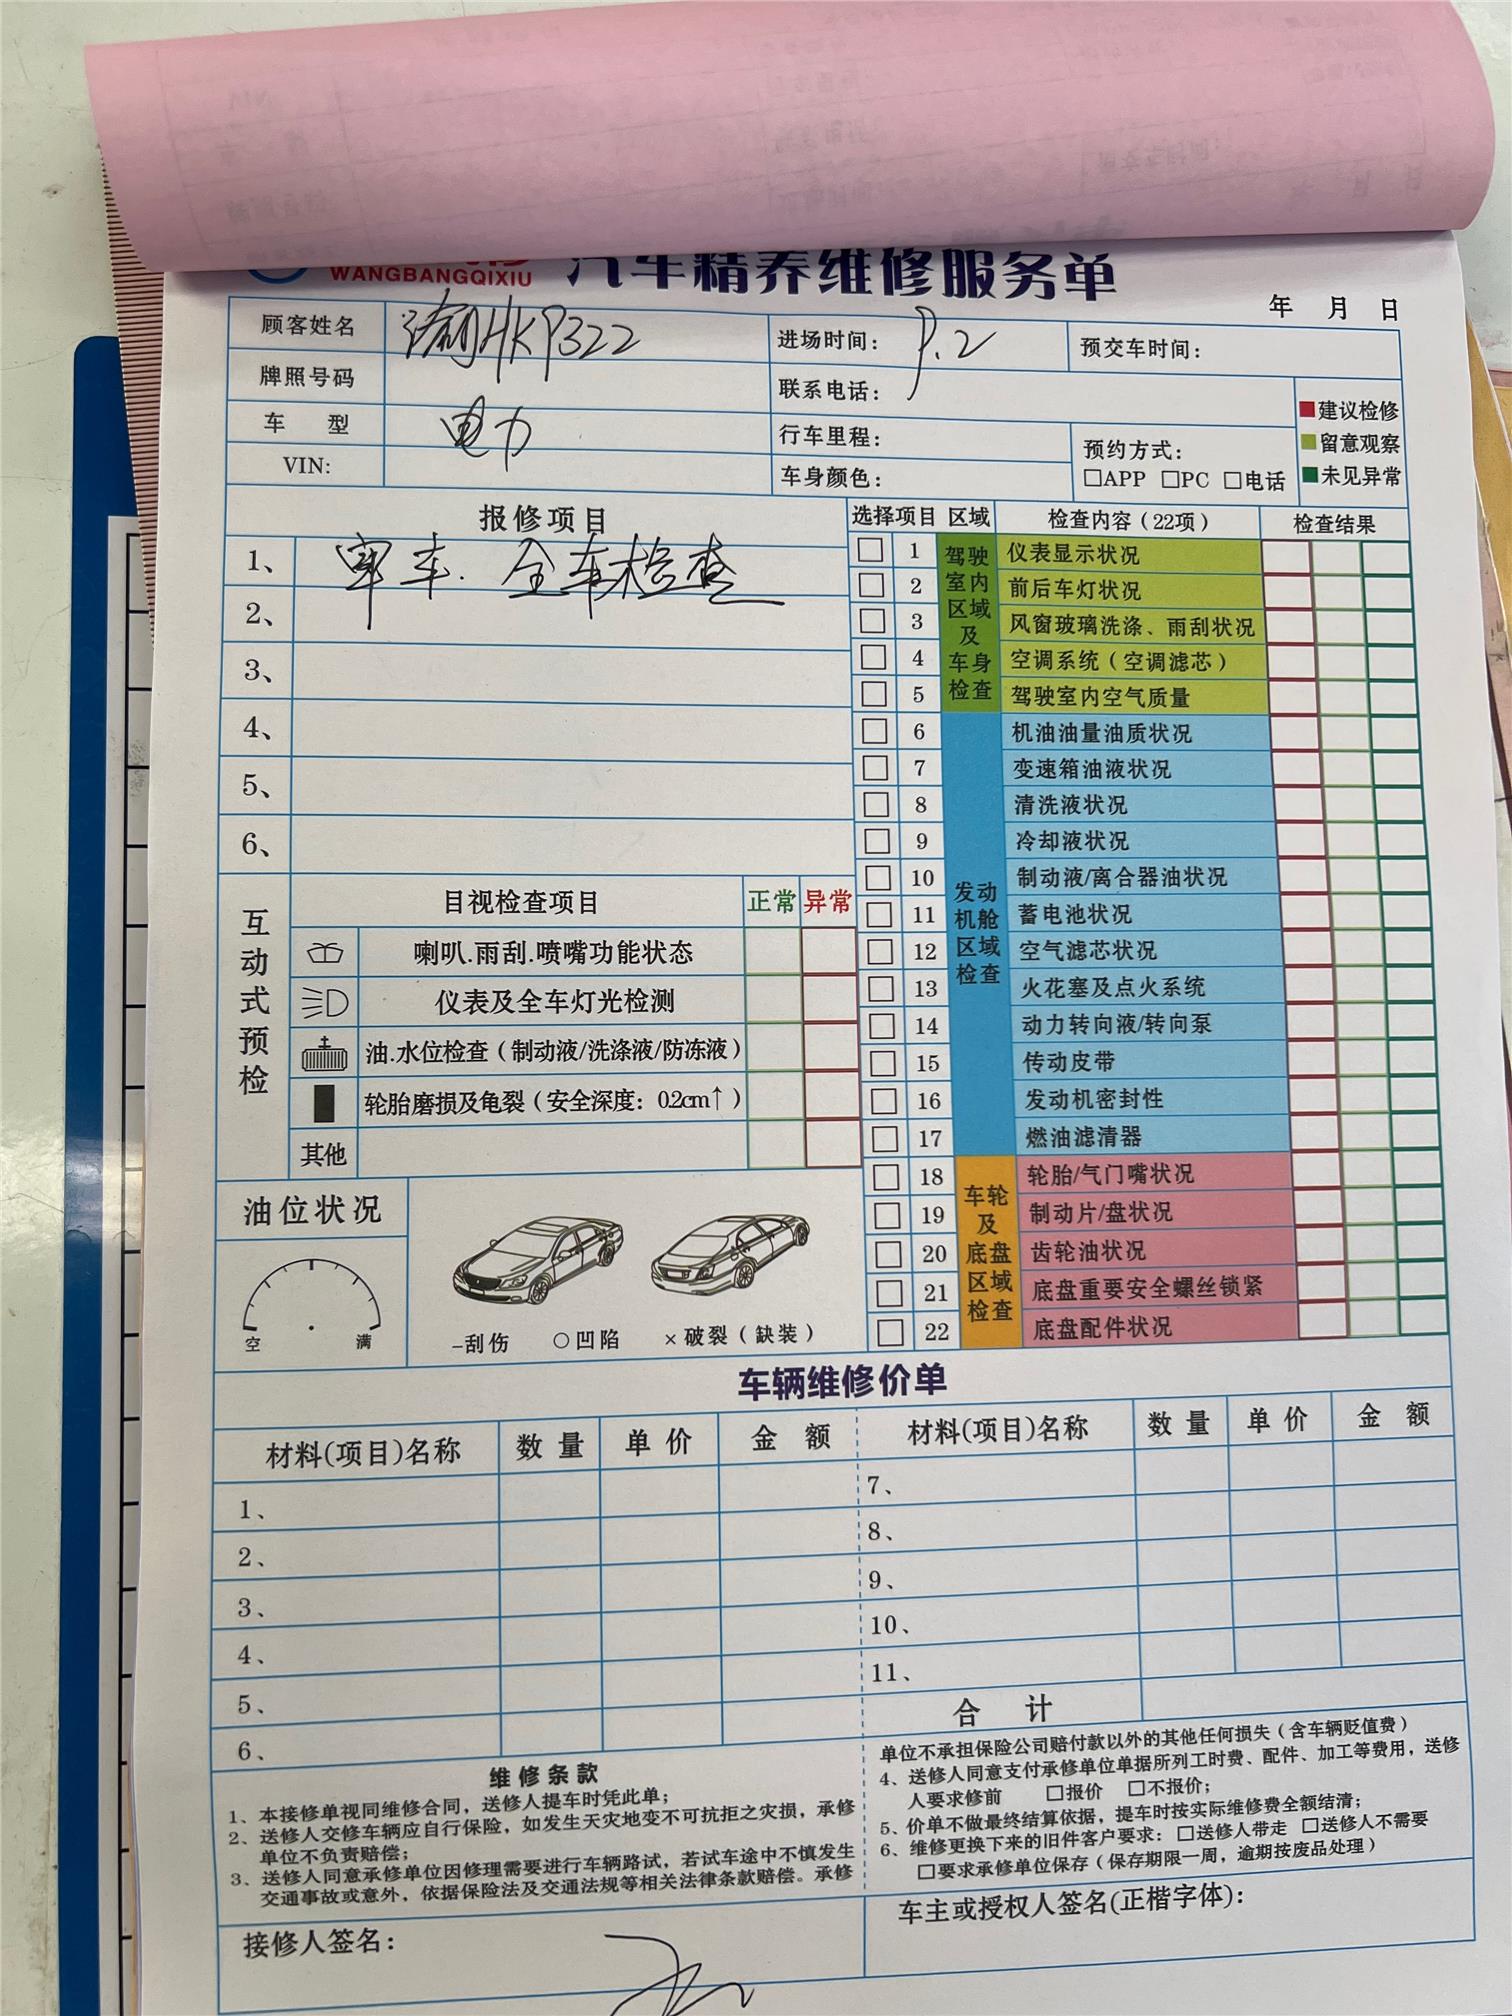 WANGBANGQIXIU
汽车精养维修服务单
年 月 日
顾客姓名 渝HKP322 进场时间: 9.2 预交车时间:
牌照号码 联系电话:
车 型 电力 行车里程: 预约方式:
VIN: 车身颜色: □APP □PC □电话
建议检修
留意观察
未见异常
报修项目
1、 审车. 全车检查
2、
3、
4、
5、
6、
互动式预检
目视检查项目 正常 异常
喇叭.雨刮.喷嘴功能状态
仪表及全车灯光检测
油.水位检查(制动液/洗涤液/防冻液)
轮胎磨损及龟裂(安全深度: 0.2cm↑)
其他
油位状况
空 满
-刮伤 ○凹陷 ×破裂(缺装)
选择项目 区域 检查内容(22项) 检查结果
驾驶室内区域及车身检查
1 仪表显示状况
2 前后车灯状况
3 风窗玻璃洗涤、雨刮状况
4 空调系统(空调滤芯)
5 驾驶室内空气质量
发动机舱区域检查
6 机油油量油质状况
7 变速箱油液状况
8 清洗液状况
9 冷却液状况
10 制动液/离合器油状况
11 蓄电池状况
12 空气滤芯状况
13 火花塞及点火系统
14 动力转向液/转向泵
15 传动皮带
16 发动机密封性
17 燃油滤清器
车轮及底盘区域检查
18 轮胎/气门嘴状况
19 制动片/盘状况
20 齿轮油状况
21 底盘重要安全螺丝锁紧
22 底盘配件状况
车辆维修价单
材料(项目)名称 数量 单价 金 额 材料(项目)名称 数量 单价 金 额
1、 7、
2、 8、
3、 9、
4、 10、
5、 11、
6、 合 计
维修条款
1、本接修单视同维修合同，送修人提车时凭此单；
2、送修人交修车辆应自行保险，如发生天灾地变不可抗拒之灾损，承修
单位不负责赔偿；
3、送修人同意承修单位因修理需要进行车辆路试，若试车途中不慎发生
交通事故或意外，依据保险法及交通法规等相关法律条款赔偿。承修
单位不承担保险公司赔付款以外的其他任何损失(含车辆贬值费)
4、送修人同意支付承修单位单据所列工时费、配件、加工等费用，送修
人要求修前 □报价 □不报价；
5、价单不做最终结算依据，提车时按实际维修费全额结清；
6、维修更换下来的旧件客户要求: □送修人带走 □送修人不需要
□要求承修单位保存(保存期限一周，逾期按废品处理)
接修人签名: 车主或授权人签名(正楷字体):